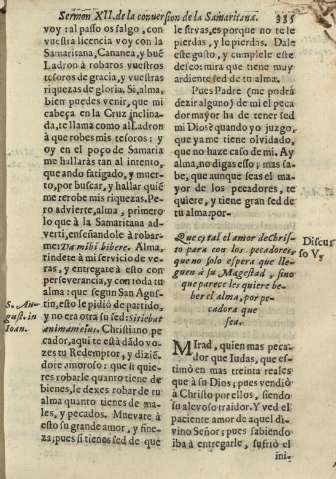 Sermon XII. de la conversion de la Samaritana. 335
voy tal passo os salgo, con
vuestra licencia voy con la
Samaritana, Cananea, y buē
Ladron à robaros vuestros
tesoros de gracia, y vuestras
riquezas de gloria. Si, alma,
bien puedes venir, que mi
cabeça en la Cruz inclina-
da, te llama como al Ladron
à que robes mis tesoros: y
yo en el poço de Samaria
me hallaràs tan al intento,
que ando fatigado, y muer-
to, por buscar, y hallar quiē
me rerobe mis riquezas. Pe-
ro advierte, alma, primero
lo que à la Samaritana ad-
verti, enseñandole à robar-
me: Da mihi bibere. Alma,
rindete à mi servicio de ve-
ras, y entregate à esto con
perseverancia, y con toda tu
alma: que segun San Agus-
tin, esto le pidió de partido,
y no era otra su sed: Sitiebat
animam eius. Christiano, pe-
cador, aqui te està dādo vo-
zes tu Redemptor, y dizié-
dote amoroso: que si quie-
res robarle quanto tiene de
bienes, le dexes robar de tu
alma quanto tienes de ma-
les, y pecados. Muevate à
esto su grande amor, y fine-
za; pues si tienes sed de que
S. Au-
gust. in
Ioan.
le sirvas, es porque no te le
pierdas, y lo pierdas. Dale
este gusto, y cumplele este
deseo: mira que tiene muy
ardiente sed de tu alma.
Pues Padre (me podrà
dezir alguno) de mi el peca
dor mayor ha de tener sed
mi Dios? quando yo juzgo,
que ya me tiene olvidado,
que no haze caso de mi. Ay
alma, no digas esso; mas sa-
be, que aunque seas el ma-
yor de los pecadores, te
quiere, y tiene gran sed de
tu alma: por-
Que es tal el amor de Chris-
to para con los pecadores,
que no solo espera que lle-
guen à su Magestad, sino
que parece les quiere be-
ber el alma, por pe-
cadora que
sea.
Discur
so V.
MIrad, quien mas peca-
dor que Iudas, que es-
timò en mas treinta reales
que à su Dios; pues vendiò
à Christo por ellos, siendo
su alevoso traidor. Y ved el
paciente amor de aquel di-
vino Señor; pues sabiendo
iba à entregarle, sufriò el
ini-